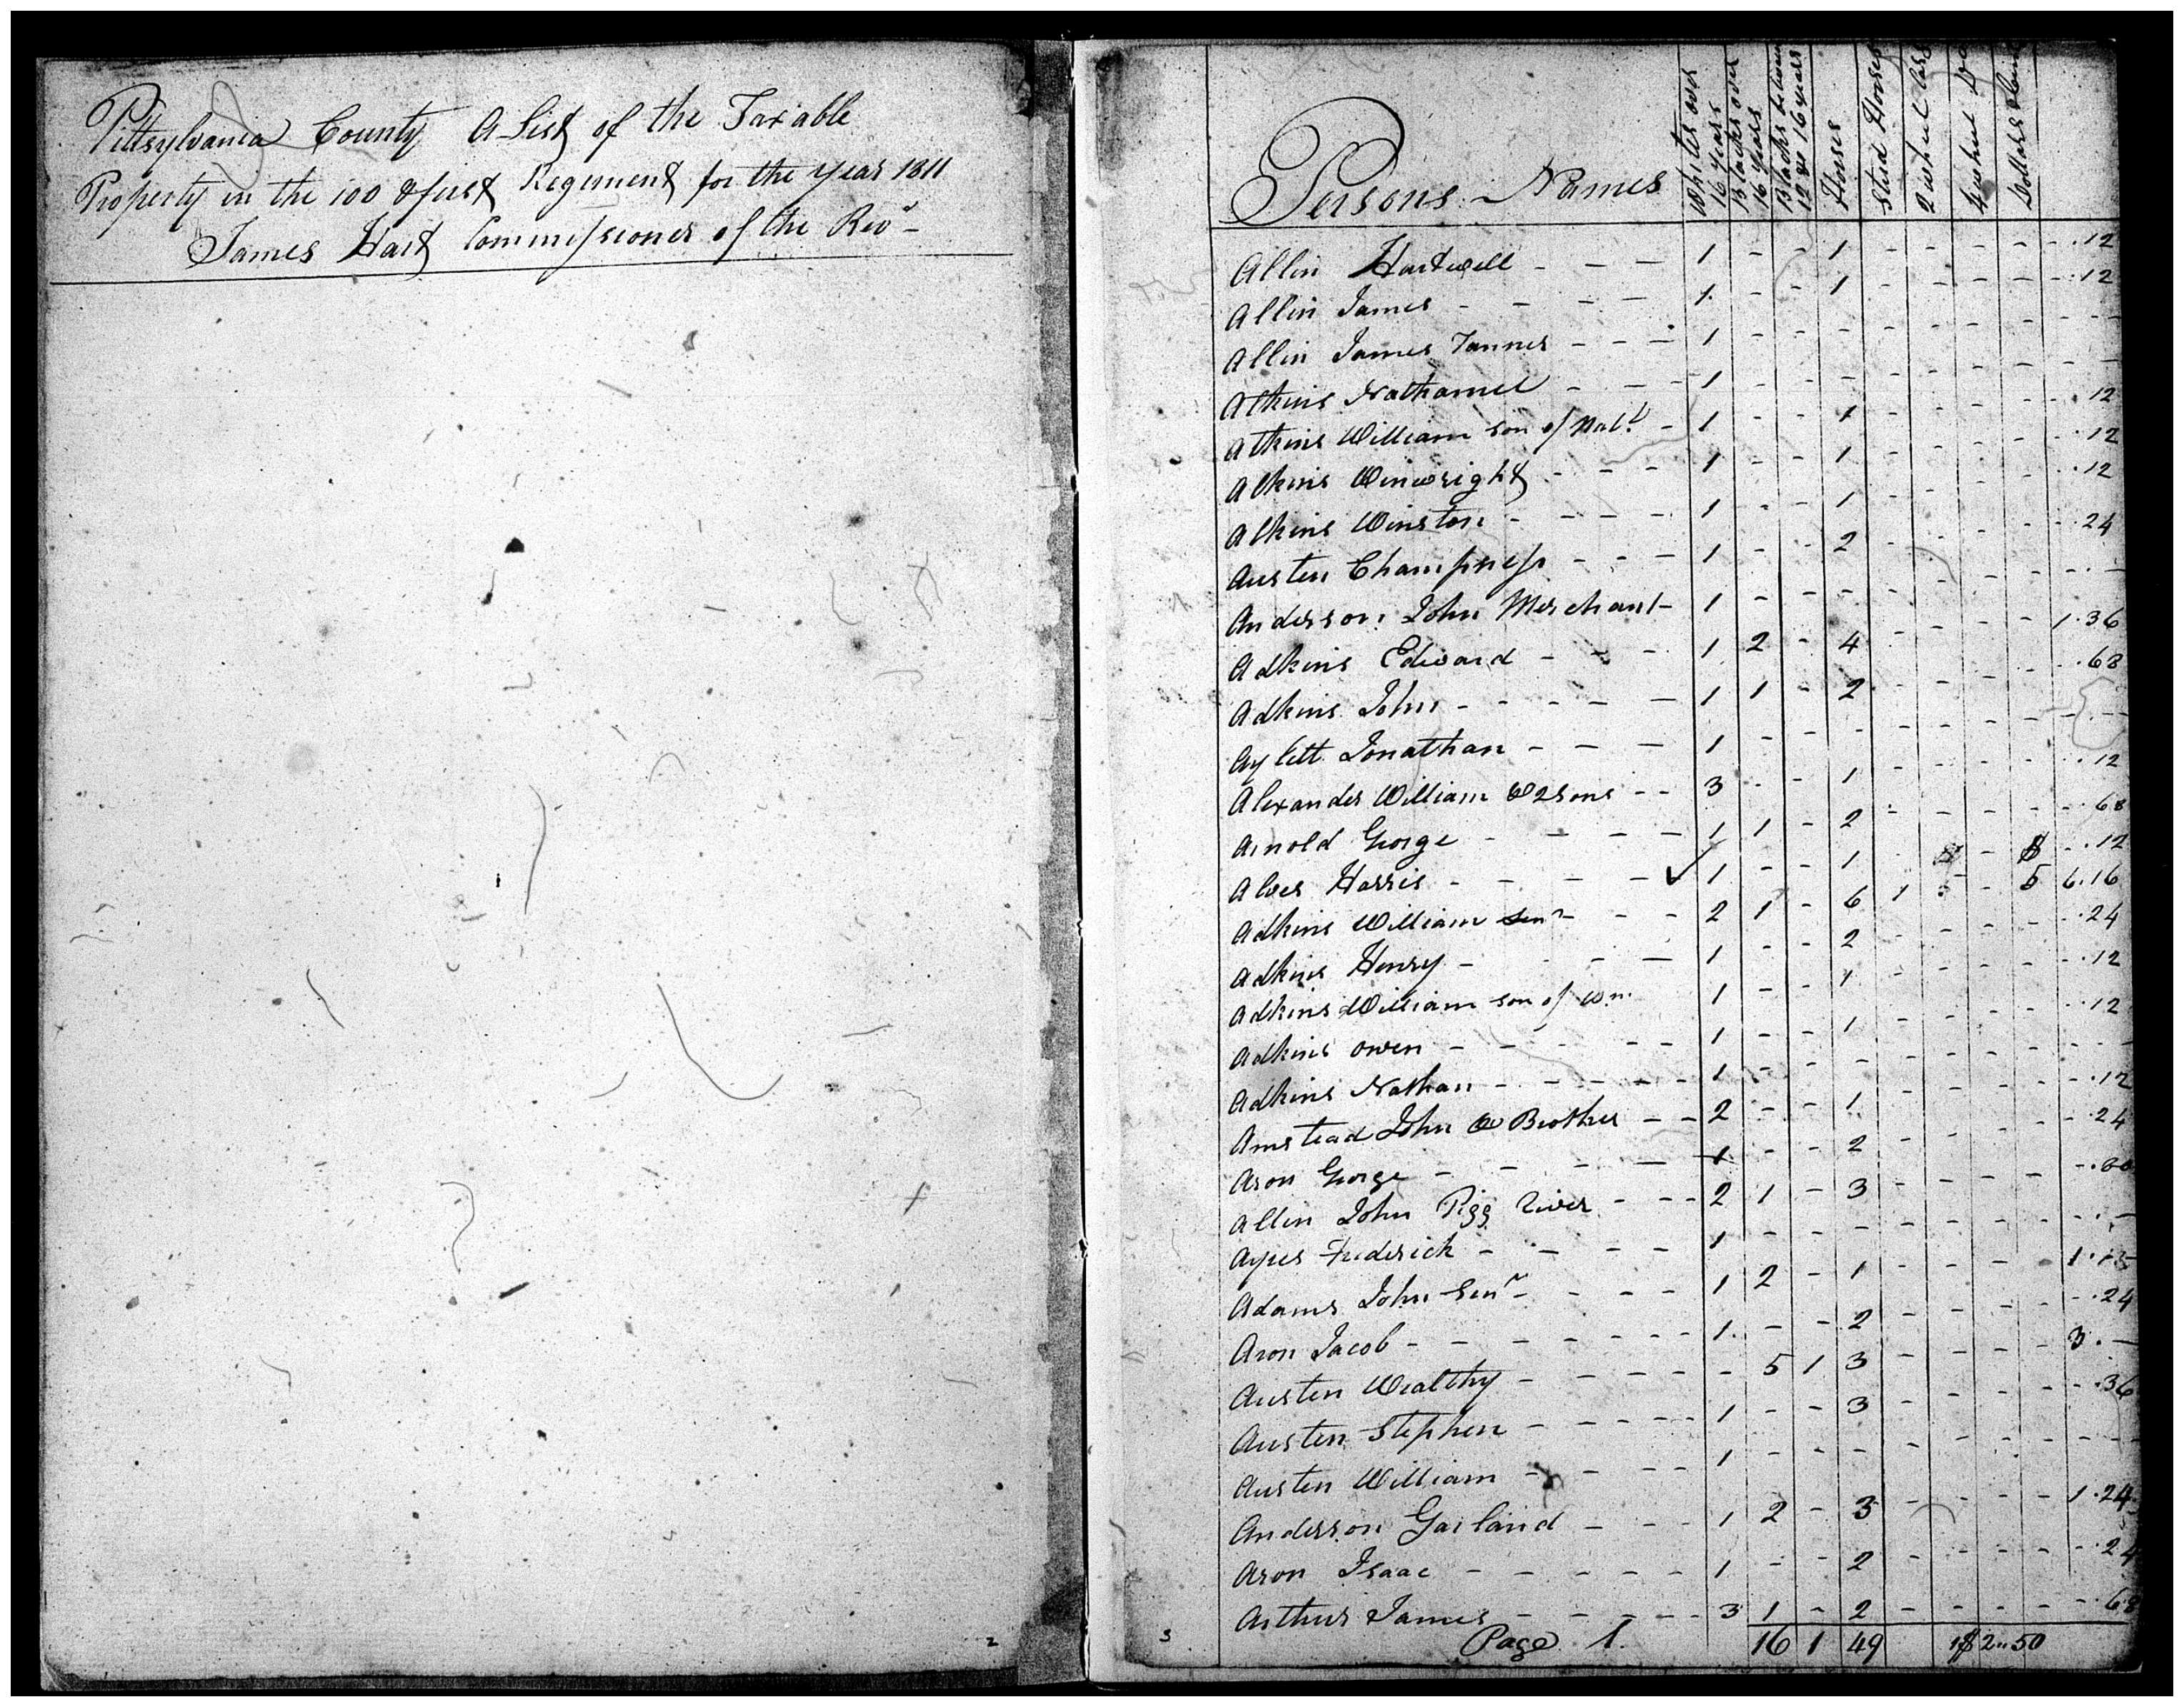 Pittsylvania County A List of the Taxable
Property in the 100 & first Regiment for the year 1811
James Hart Commissioner of the Revr
Persons Names
Whites over 16 years
Blacks over 16 years
Blacks between 12 & 16 years
Horses
Stud Horses
2 wheel
4 wheel
Dollars &
Allin Hartwell - - - 1 - - 1 - - - - - .12
Allin James - - - - 1 - - 1 - - - - - .12
Allin James Tanner - - - 1 - - - - - - - -
Atkins Nathaniel - - - 1 - - - - - - - -
Atkins William son of Natl - 1 - - 1 - - - - .12
Atkins Winwright - - - 1 - - 1 - - - - .12
Atkins Winston - - - - 1 - - 1 - - - - .12
Austen Champness - - - 1 - - 2 - - - - .24
Anderson John Merchant - 1 - - - - - - - . -
Adkins Edward - - - 1 2 - 4 - - - - 1.36
Adkins John - - - - - 1 1 - 2 - - - - .68
Aylett Jonathan - - - 1 - - - - - - - -
Alexander William & 2 sons - - 3 - - 1 - - - - .12
Arnold George - - - - 1 1 - 2 - - - - .68
Alves Harris - - - - 1 - - 1 - - .12
Adkins William Senr - - - 2 1 - 6 1 - - 5 6.16
Adkins Henry - - - - 1 - - 2 - - - - .24
Adkins William son of Wm. 1 - - 1 - - - - .12
Adkins Owen - - - - - 1 - - 1 - - - - .12
Adkins Nathan - - - - - 1 - - - - - - - -
Amstead John & Brother - - 2 - - 1 - - - - .12
Aron George - - - - 1 - - 2 - - - - .24
Allin John Pigg River - - - 2 1 - 3 - - - - .80
Ayres Frederick - - - - 1 - - - - - - - . -
Adams John Senr - - - - 1 2 - 1 - - - -
Aron Jacob - - - - - - - 1 - - 2 - - - - .24
Austen Wealthy - - - - - - 5 1 3 - - - - 3. -
Austen Stephen - - - - - 1 - - 3 - - - - .36
Austen William - - - - 1 - - - - - - - -
Anderson Garland - - - 1 2 - 3 - - - - 1.24
Aron Isaac - - - - - 1 - - 2 - - - - .24
Arthur James - - - - - 3 1 - 2 - - - - .68
Page 1. 16 1 49
2
3